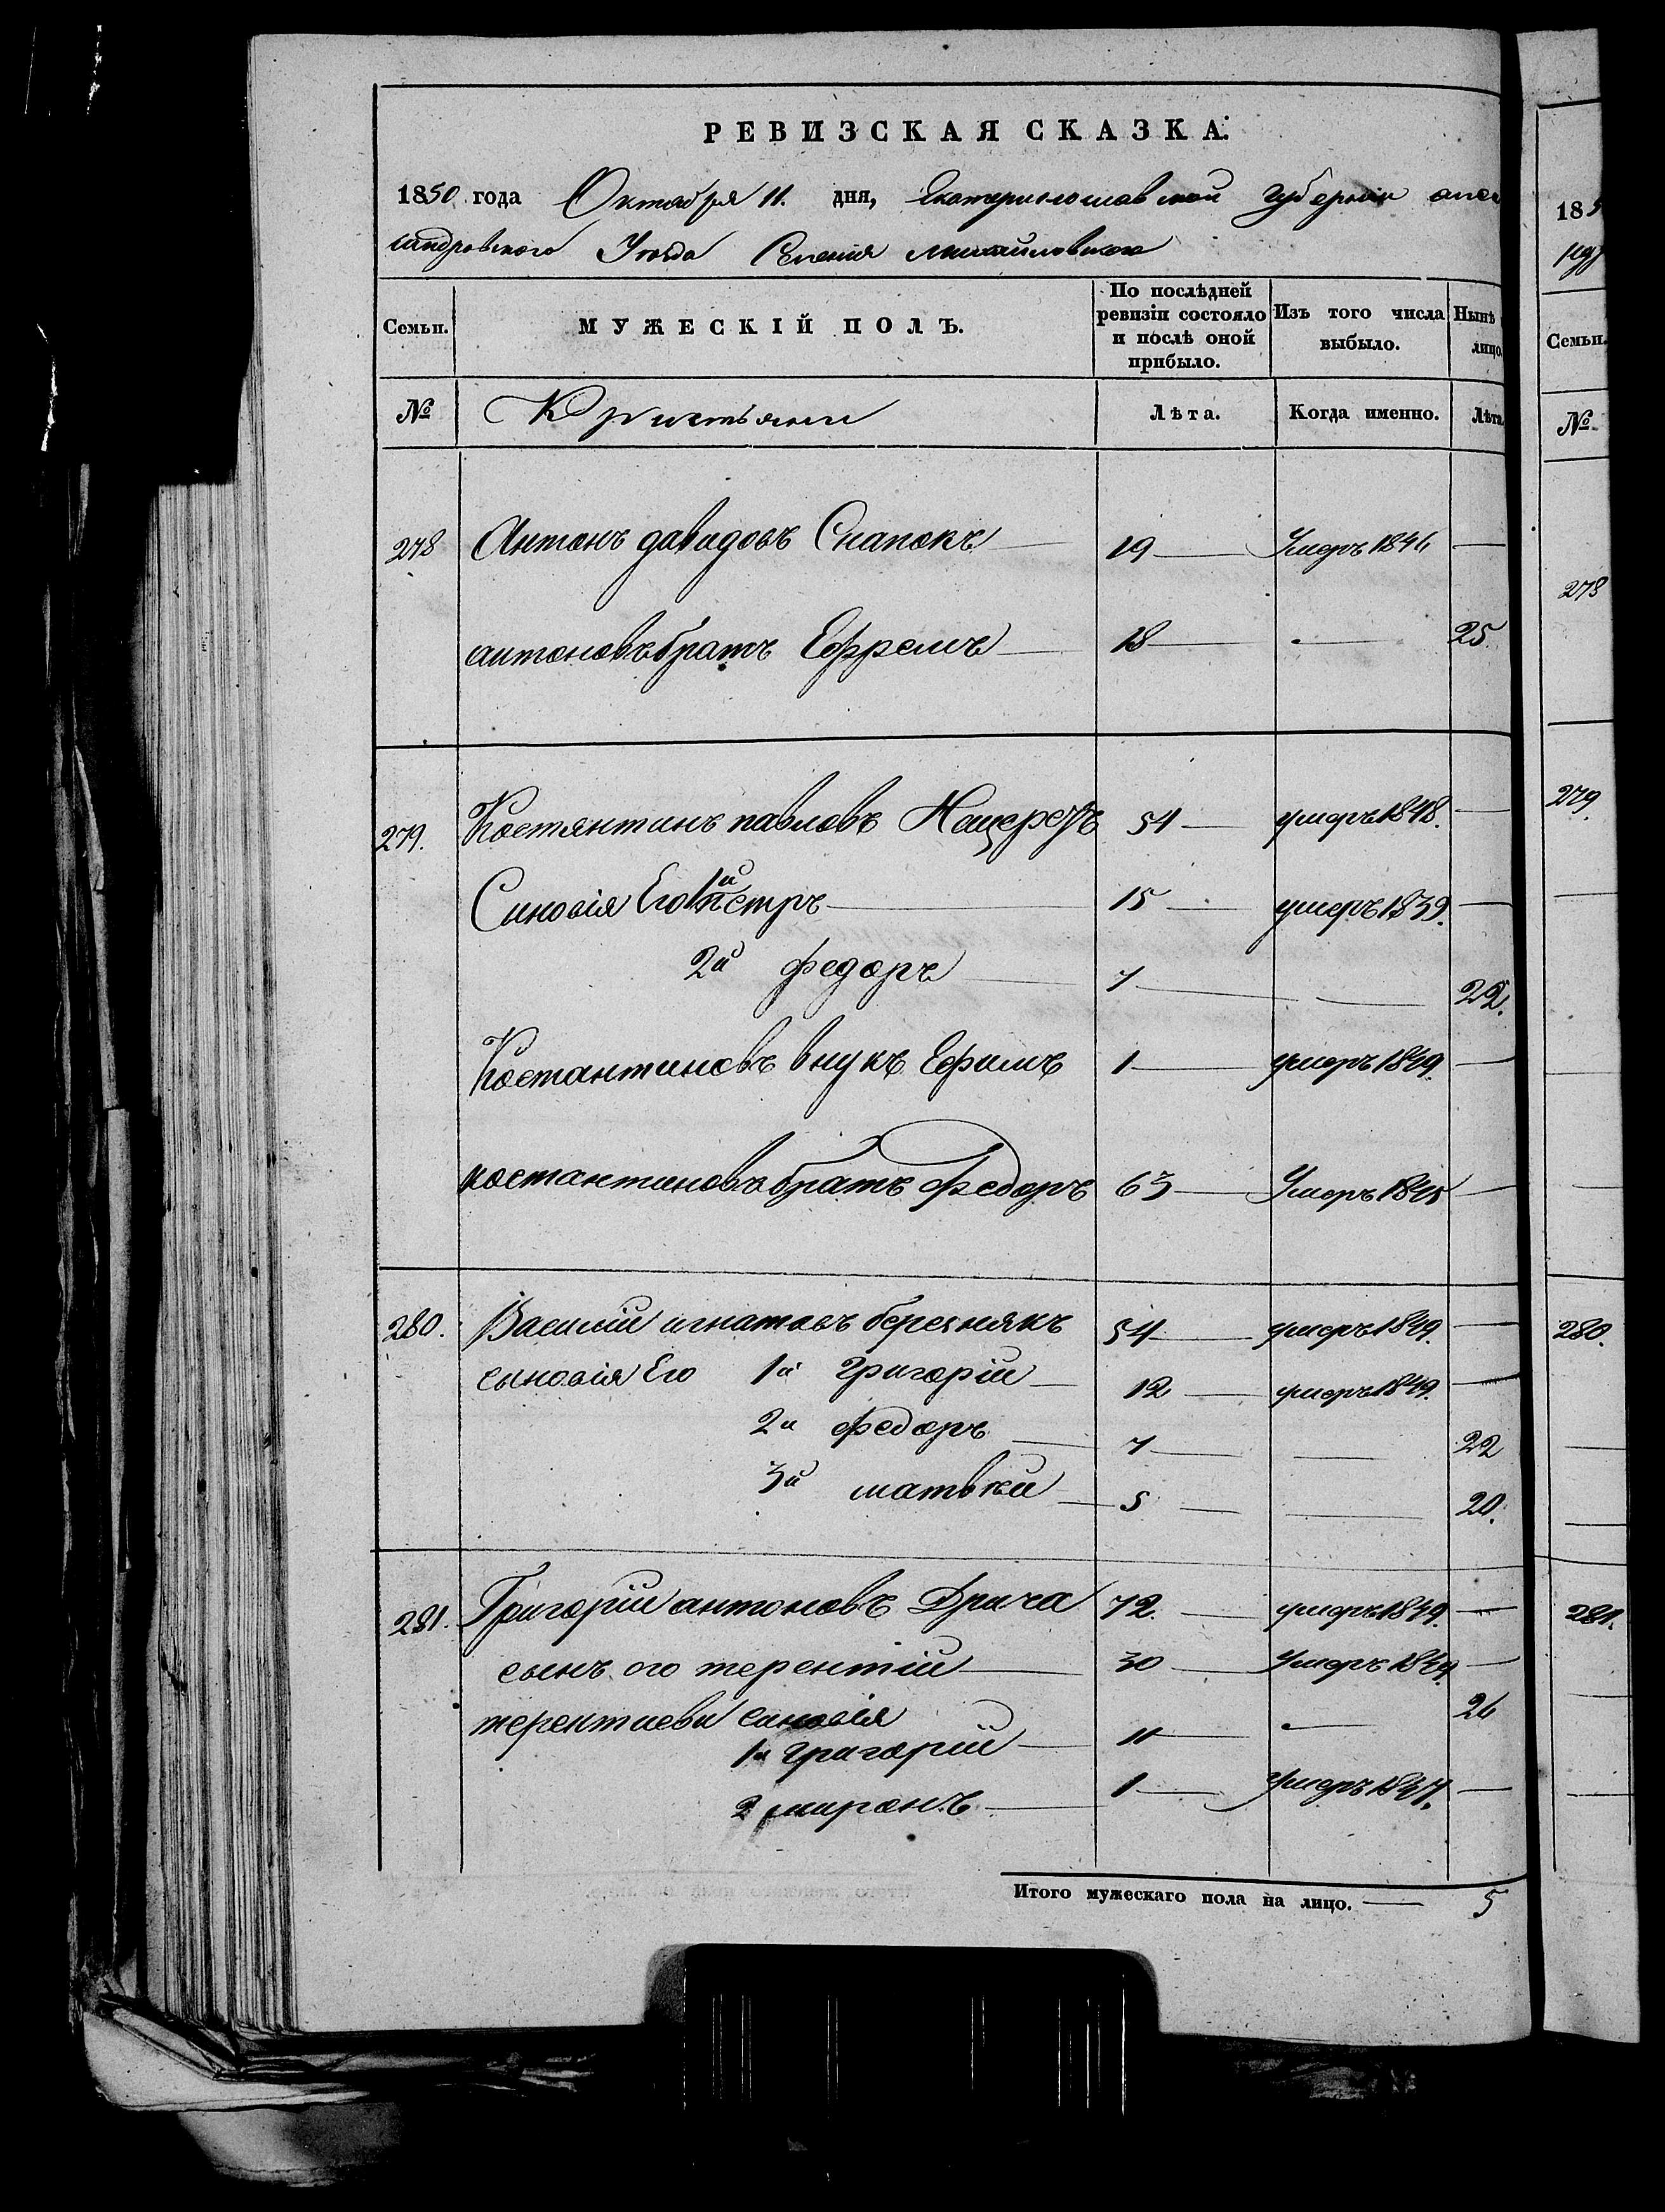 РЕВИЗСКАЯ СКАЗКА.
1850 года Октября 11. дня, Екатеринославской губернии алек
сандровского Уезда Селения Михайловского
Семьи. МУЖЕСКІЙ ПОЛЪ. По послѣдней ревизіи состояло и послѣ оной прибыло. Изъ того числа выбыло. Нынѣ лицо.
№ Лѣта. Когда именно. Лѣта.
278 Антонъ давидовъ Снапокъ 19 Умеръ 1846
антоновъ братъ Ефремъ 18 25
279. Костянтинъ павловъ 54 умеръ 1848.
Синовія Его 1й петръ 15 умеръ 1839.
2й федоръ 7 22.
Костантиновъ внукъ Ефимъ 1 умеръ 1849.
костантиновъ братъ Федоръ 63 Умеръ 1845
280. Василий игнатовъ березнякъ 54 умеръ 1849.
сыновія Его 1й Григорій 12 умеръ 1849.
2й федоръ 7 22
3й матвѣй 5 20.
281. Григорій антоновъ Дрича 72. умеръ 1849.
сынъ его терентій 30 Умеръ 1849
терентиеви синовія
1й Григорій 11 26
2 миронъ 1 Умеръ 1837.
Итого мужескаго пола на лицо. 5
185
Семьи.
№
278
279.
280.
281.